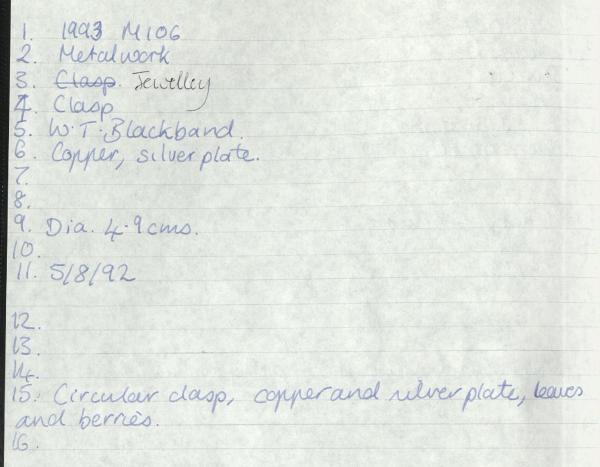 1. 1993 M106
2. Metalwork
3. Clasp. Jewelley
4. Clasp
5. W.T. Blackband.
6. Copper, silver plate.
7.
8.
9. Dia. 4.9cms.
10.
11. 5/8/92
12.
13.
14.
15. Circular clasp, copper and silver plate, leaves
and berries.
16.